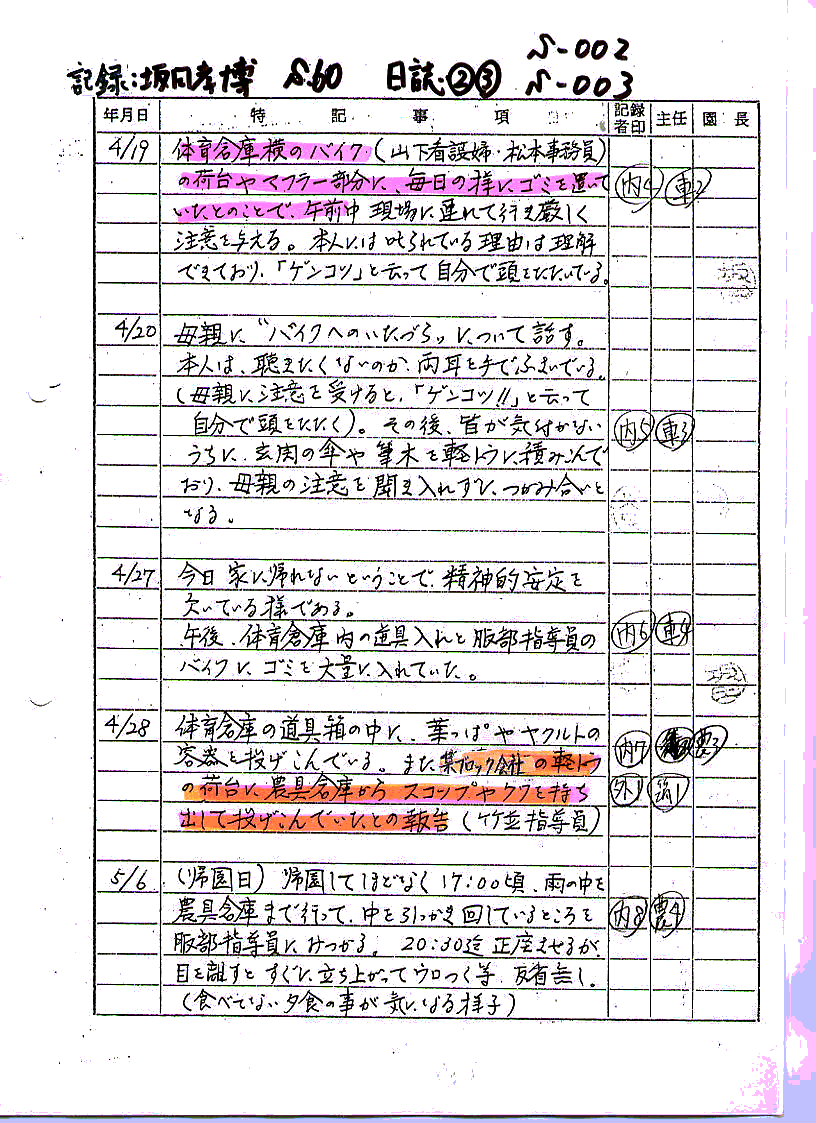 S-002
記録:坂口孝博 S.60 日誌・②③ S-003
年月日 特記事項 記録者印 主任 園長
4/19 体育倉庫横のバイク(山下看護婦・松本事務員)
の荷台やマフラー部分に、毎日の様にゴミを置いて 内4 車2
いたとのことで、午前中 現場に連れて行き厳しく
注意を与える。本人には叱られている理由は理解
できており、「ゲンコツ」と云って自分で頭をたたいている。
4/20 母親に“バイクへのいたづら„について話す。
本人は、聴きたくないのか、両耳を手でふさいでいる。
(母親に注意を受けると、「ゲンコツ!!」と云って
自分で頭をたたく)。その後、皆が気付かない 内5 車3
うちに、玄関の傘や 木を軽トラに積みこんで
おり、母親の注意を聞き入れずに、つかみ合いと
なる。
4/27 今日 家に帰れないということで、精神的安定を
欠いている様である。
午後、体育倉庫内の道具入れと服部指導員の 内6 車4
バイクに、ゴミを大量に入れていた。
4/28 体育倉庫の道具箱の中に、葉っぱやヤクルトの
容器を投げこんでいる。また、ブロック会社の軽トラ 内7 農3
の荷台に、農具倉庫から スコップやクワを持ち 外1
出して投げこんでいたとの報告(竹並指導員)
5/6 (帰園日) 帰園してほどなく17:00頃、雨の中を
農具倉庫まで行って、中を引っかき回しているところを 内8 農4
服部指導員にみつかる。20:30迄 正座させるが、
目を離すと すぐに立ち上がってウロつく等、反省無し。
(食べてない夕食の事が気になる様子)